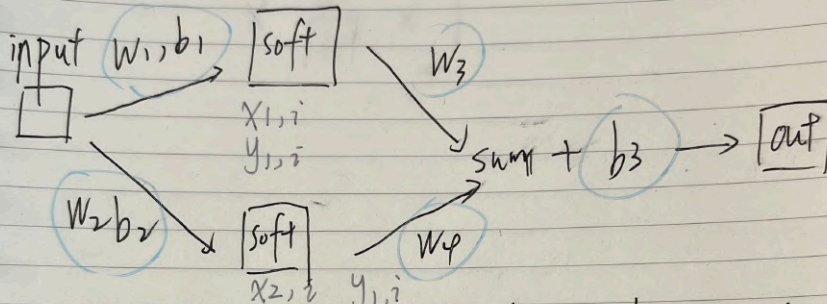 input W1,b1 soft W3
x1,i
y1,i
sum + b3 out
W2b2 soft W4
x2,i y1,i